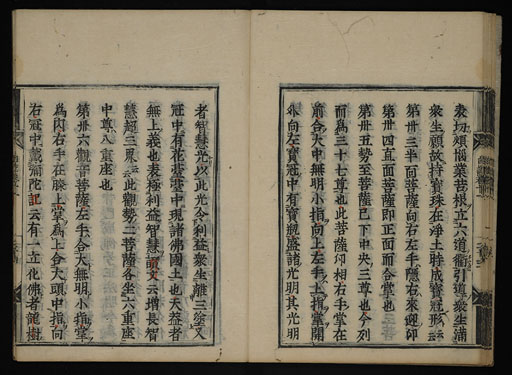 表切煩惱業苦根立六道衢引導衆生滿
衆生願故持寶珠在净土時成寶冠形云云
第卅三半面菩薩向右左手隱右來迎印
第卅四直面菩薩即正面而合掌也三菩
第卅五勢至菩薩已下中央三尊也今列
而爲三十七尊也此菩薩印相右手掌在
前合大中無明小指向上左手上指掌開
外向左寶冠中有寶瓶盛諸光明其光明
者智慧光以此光令利益衆生離三塗又
冠中有花臺臺中現諸佛國土也天益者
無上義也表極利益智慧讀文云增長智
慧超三界云云此觀勢二菩薩各坐六重座
中尊八重座也
第卅六觀音菩薩左手合大無明小指掌
爲内右手在膝上掌爲上合大頭中指向
右冠中戴彌陀記云有一立化佛者龍樹